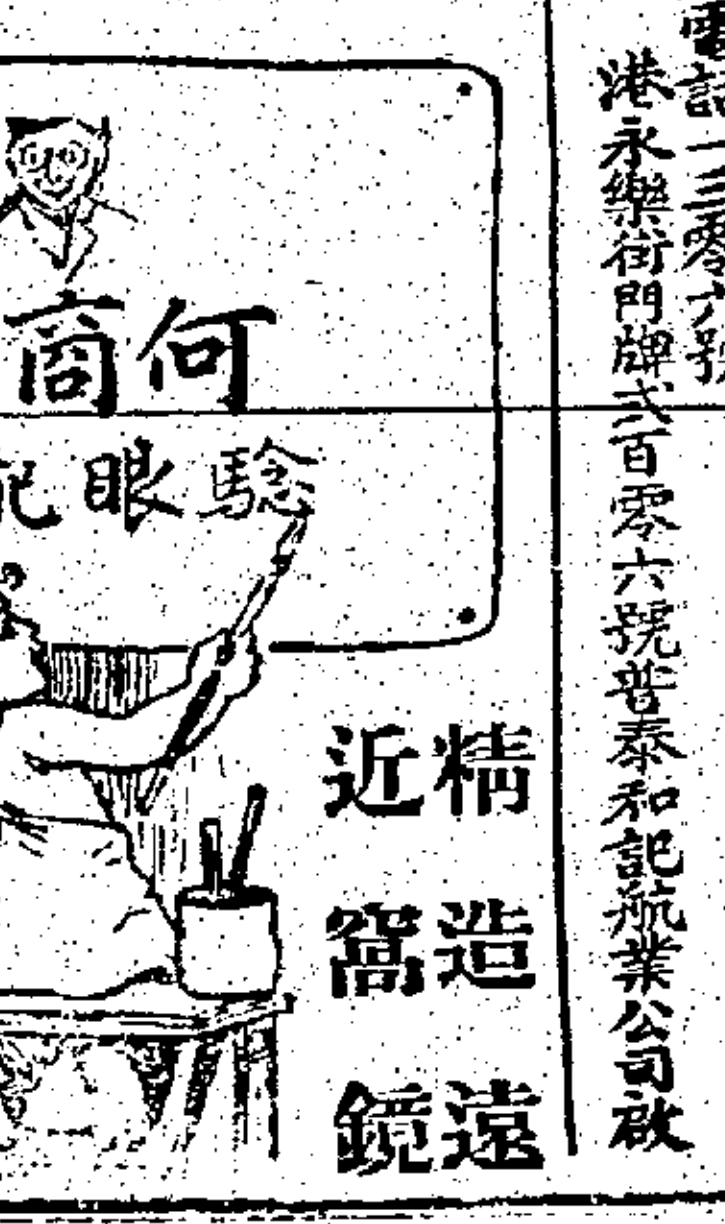 電話一三零六號
港永樂街門牌弍百零六號普泰和記航業公司啟
何商
騐眼
精造遠
近窩鏡